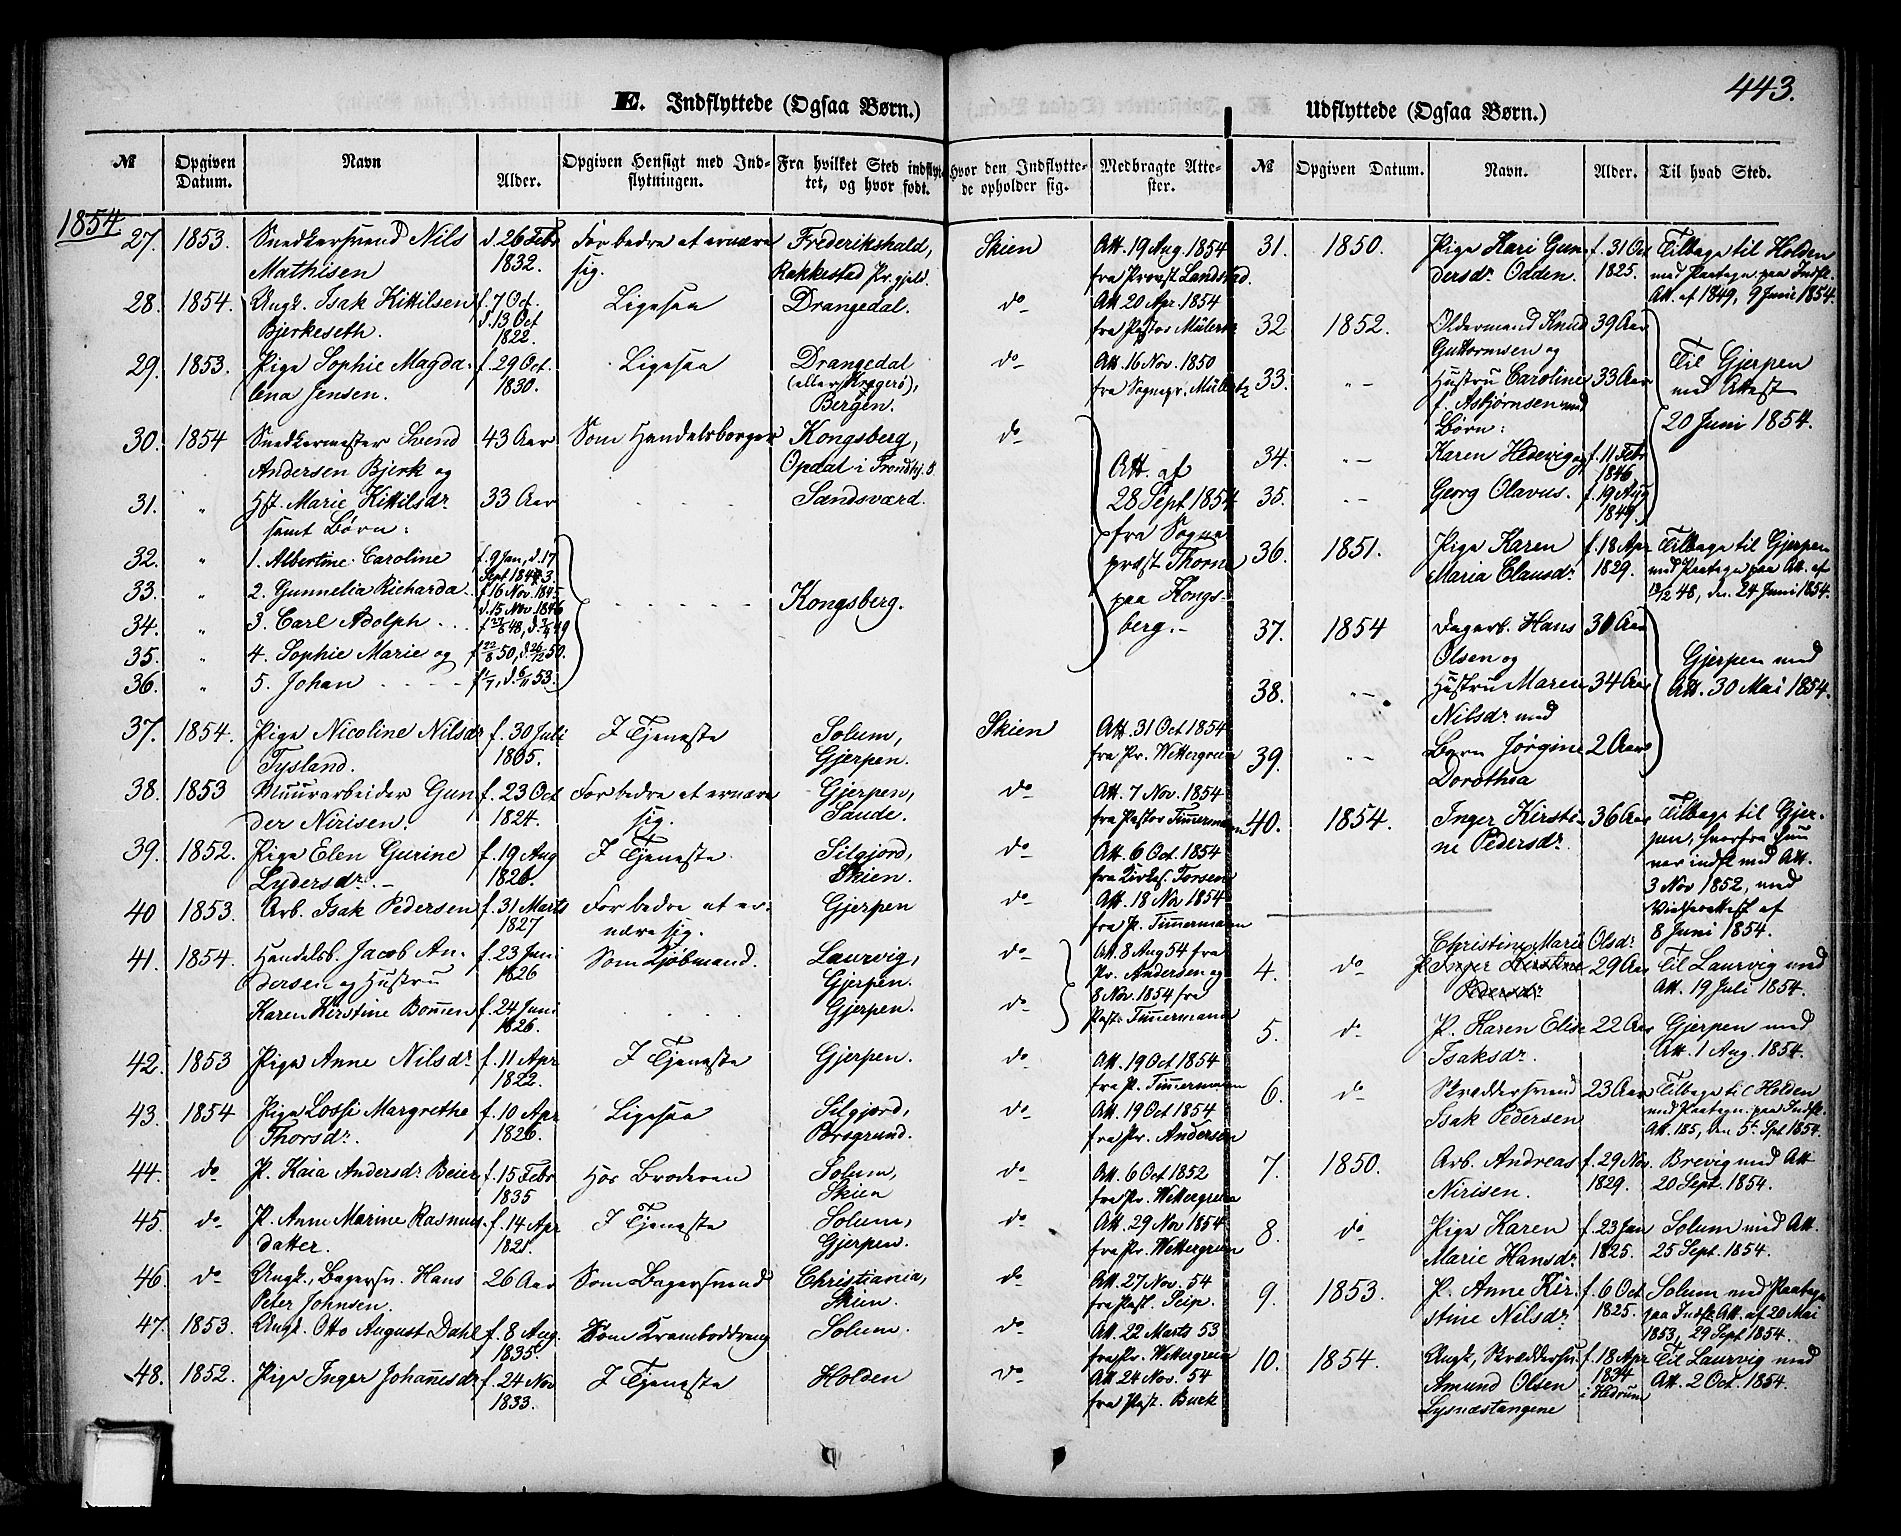 443.
E. Indflyttede (Ogsaa Børn.)
Udflyttede (Ogsaa Børn.)
№ Opgiven Datum. Navn Alder. Opgiven Hensigt med Indflytningen. Fra hvilket Sted indflyttet, og hvor født. Hvor den Indflyttede opholder sig. Medbragte Attester.
1854
27. 1853. Snedkersvend Nils d. 26 Febr For bedre at ernære Frederikshald, Skien Att. 19 Aug. 1854
Mathisen 1832. sig. Rakkestad Pr.gjeld. fra Provst Landstad.
28. 1854. Ungk. Isak Kittilsen f. 7 Oct. Ligesaa Drangedal. do Att. 20 Apr. 1854
Bjerkeseth. d. 13 Oct 1822. fra Pastor Mülertz
29. 1853. Pige Sophie Magda- f. 29 Oct. Ligesaa Drangedal do Att. 16 Nov. 1850
lena Jensen. 1830. (eller Kragerø), fra Sognepr. Mülertz
Bergen.
30. 1854 Snedkermester Svend 43 Aar Som Handelsborger Kongsberg, do
Andersen Bjerk og Opdal i Trondhj. S Att. af
31. " Hst. Marie Kittilsdr 33 Aar Sandsværd. 28 Sept 1854
samt Børn: fra Sogne-
32. " 1. Albertine Caroline f. 9 Jan, d. 17 Sept 1843. præst Thorne
33. " 2. Gunnelia Richarda f. 16 Nov. 1845 d. 15 Nov. 1846 Kongsberg. paa Kongs-
34. " 3. Carl Adolph berg.
35. " 4. Sophie Marie og f 22/8 50, d. 26/12 50.
36. " 5. Johan
37. 1854. Pige Nicoline Nilsdr f. 30 Juli I Tjeneste Solum, Skien Att. 31 Oct 1854
Tysland. 1805. Gjerpen. fra Pr. Wettergreen
38. 1853 Muurarbeider Gun- f. 23 Oct For bedre at ernære Gjerpen, do Att. 7 Nov. 1854
der Nirisen. 1824. sig. Saude. fra Pastor Timermann
39. 1852. Pige Elen Gurine f. 19 Aug I Tjeneste Silgjord, do Att. 6 Oct. 1854
Lydersdr. 1826. Skien. fra Kirkes. Torsen
40 1853. Arb. Isak Pedersen f. 31 Marts For bedre at er- Gjerpen do Att. 18 Nov 1854
1827 nære sig. fra P. Timermann
41. 1854. Handelsb. Jacob An- f. 23 Juni Som Kjøbmand. Laurvig, do Att. 8 Aug 54 fra
dersen og Hustru 1826 Gjerpen. Pr. Andersen og
Karen Kirstine Bomen f. 24 Juni Gjerpen. do 8 Nov. 1854 fra
1826. Past. Timermann
42. 1853 Pige Anne Nilsdr f. 11 Apr I Tjeneste Gjerpen. do Att. 19 Oct 1854
1822. fra P. Timermann
43. 1854 Pige Lossi Margrethe f. 10 Apr Ligesaa Silgjord, do Att. 19 Oct 1854
Thorsdr. 1826. Porsgrund. fra Pr. Andersen
44. do P. Kaia Andersdr. Beier f. 15 Febr Hos Broderen Solum, do Att. 6 Oct 1852
1835 Skien fra Pr. Wettergreen
45. do P. Anne Marine Rasmus- f. 14 Apr I Tjeneste Solum, do Att. 29 Nov 1854
datter. 1821. Gjerpen. fra Pr. Wettergreen
46. do Ungk., Bagersv. Hans 26 Aar Som Bagersvend Christiania, do Att. 27 Nov. 54
Peter Johnsen. Skien. fra Past. Seip.
47. 1853. Ungk. Otto August Dahl f. 8 Aug. Som Kramboddreng Solum. do Att. 22 Marts 53
1835. fra Pr. Wettergreen
48. 1852. Pige Inger Johanesdr f. 24 Nov I Tjeneste Holden do Att 24 Nov. 54
1833. fra Past. Buck
№ Opgiven Datum. Navn. Alder. Til hvad Sted.
31. 1850. Pige Kari Gun- f. 31 Oct Tilbage til Holden
dersdr Odden. 1825. med Paategn. paa Indfl.
Att. af 1849, 9 Juni 1854.
32 1852. Oldermand Knud 39 Aar
Guttormsen og Til Gjerpen
33. " Hustru Caroline 33 Aar med Attest
f. Asbjørnsen med 20 Juni 1854.
Børn:
34. " Karen Hedevig og f. 11 Febr 1846
35. " Georg Olavus. f. 19 Aug 1849.
36. 1851. Pige Karen f. 18 Apr Tilbage til Gjerpen
Maria Clausdr 1829. med Paategn. paa Att. af
12/12 48, den 24 Juni 1854.
37. 1854 Dagarb. Hans 30 Aar
Olsen og Gjerpen med
38. " Hustru Maren 34 Aar Att. 30 Mai 1854.
Nilsdr med
39. " Barn Jørgine 2 Aar
Dorothea
40. 1854. Inger Kirsti- 36 Aar Tilbage til Gjer-
ne Pedersdr. pen, hvorfra hun
var indfl med Att.
3 Nov 1852, med
Vielsesattest af
8 Juni 1854.
Christine Marie Olsdr
4. do P. Inger Kirstine 29 Aar Til Laurvig med
Pedersdr Att. 19 Juli 1854.
5. do P. Karen Elise 22 Aar Gjerpen med
Isaksdr. Att. 1 Aug. 1854.
6. do Skræddersvend 23 Aar Tilbage til Holden
Isak Pedersen med Paategn. paa Indfl.
Att. 185, den 5t Spt 1854.
7. 1850. Arb. Andreas f. 29 Nov. Brevig med Att
Nirisen. 1829. 20 Sept. 1854.
8. do Pige Karen f. 23 Jan Solum med Att.
Marie Hansdr. 1825. 25 Sept. 1854.
9. 1853. P. Anne Kir- f. 6 Oct Solum med Paategn
stine Nilsdr. 1825. paa Indfl. Att. af 20 Mai
1853, 29 Sept 1854.
10. 1854. Ungk., Skræddersv. f. 18 Apr Til Laurvig med
Amund Olsen 1834 Att. 2 Oct. 1854.
Lysnæstangene i Hedrum